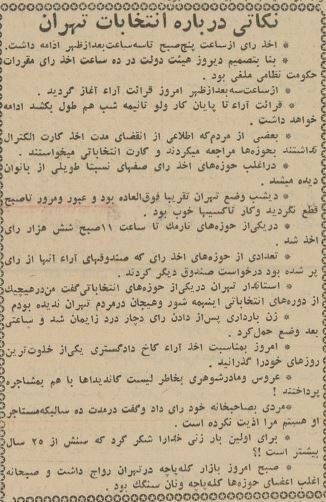 نکاتی درباره انتخابات تهران
* اخذ رای ازساعت پنج‌صبح تاسه‌ساعت‌بعدازظهر ادامه داشت.
* بنا بتصمیم دیروز هیئت دولت در ده ساعت اخذ رای مقررات
حکومت نظامی ملغی بود .
* ازساعت‌سه‌بعدازظهر امروز قرائت آراء آغاز گردید .
* قرائت آراء تا پایان کار ولو تانیمه شب هم طول بکشد ادامه
خواهد داشت .
* بعضی از مردم‌که اطلاعی از انقضای مدت اخذ کارت الکترال
نداشتند بحوزه‌ها مراجعه میکردند و کارت انتخاباتی میخواستند .
* دراغلب حوزه‌های اخذ رای صفهای نسبتا طویلی از بانوان
دیده میشد .
* دیشب وضع تهران تقریبا فوق‌العاده بود و عبور ومرور تاصبح
قطع نگردید وکار تاکسیها خوب بود .
* دریکی‌از حوزه‌های نارمك تا ساعت ۱۱صبح شش هزار رای
اخذ شد .
* تعدادی از حوزه‌های اخذ رای که صندوقهای آراء آنها از رای
پر شده بود درخواست صندوق دیگر کردند .
* استاندار تهران دریکی‌از حوزه‌های انتخاباتی‌گفت من‌درهیچیك
از دوره‌های انتخاباتی اینهمه شور وهیجان درمردم تهران ندیده بودم
* زن بارداری پس‌از دادن رای دچار درد زایمان شد و ساعتی
بعد وضع حمل‌کرد .
* امروز بمناسبت اخذ آراء کاخ دادگستری یکی‌از خلوت‌ترین
روزهای خودرا گذرانید .
* عروس ومادرشوهری بخاطر لیست کاندیداها با هم بمشاجره
پرداختند !
*مردی بصاحبخانه خود رای داد وگفت درمدت ده سالیکه‌مستاجر
او هستم مرا اذیت نکرده است .
* برای اولین بار زنی خدارا شکر کرد که سنش از ۲۵ سال
بیشتر است !؟
* صبح امروز بازار کله‌پاچه درتهران رواج داشت و صبحانه
اغلب اعضای حوزه‌ها کله‌پاچه ونان سنگك بود .